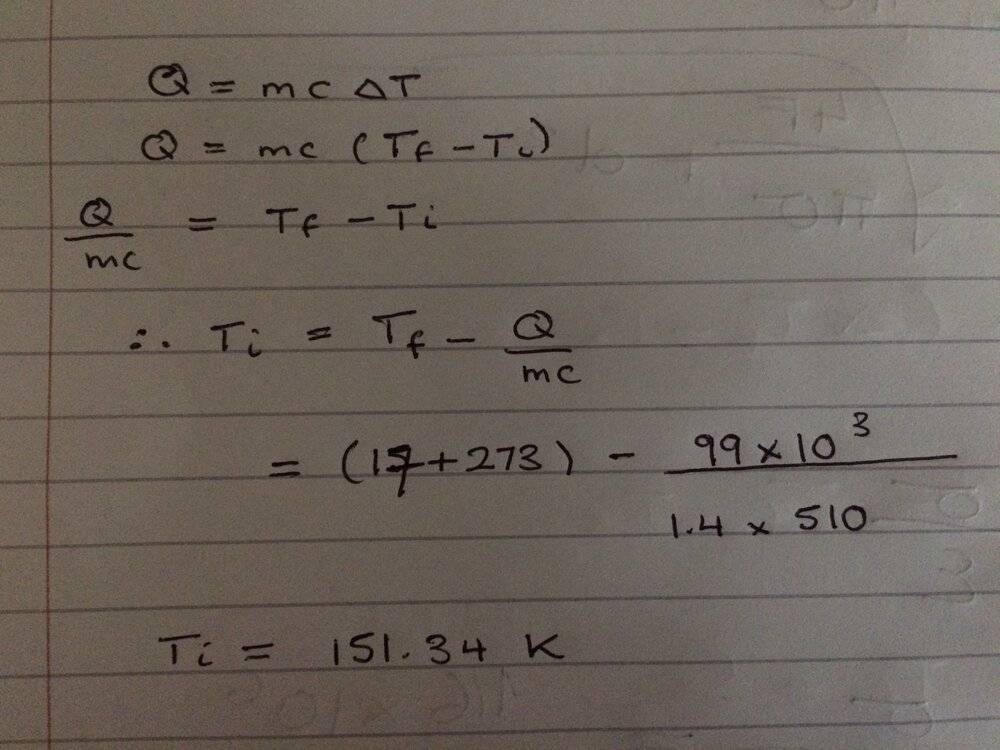 Q = mc ΔT
Q = mc (Tf - Ti)
Q/mc = Tf - Ti
∴ Ti = Tf - Q/mc
= (17+273) - 99 x 10³/1.4 x 510
Ti = 151.34 K